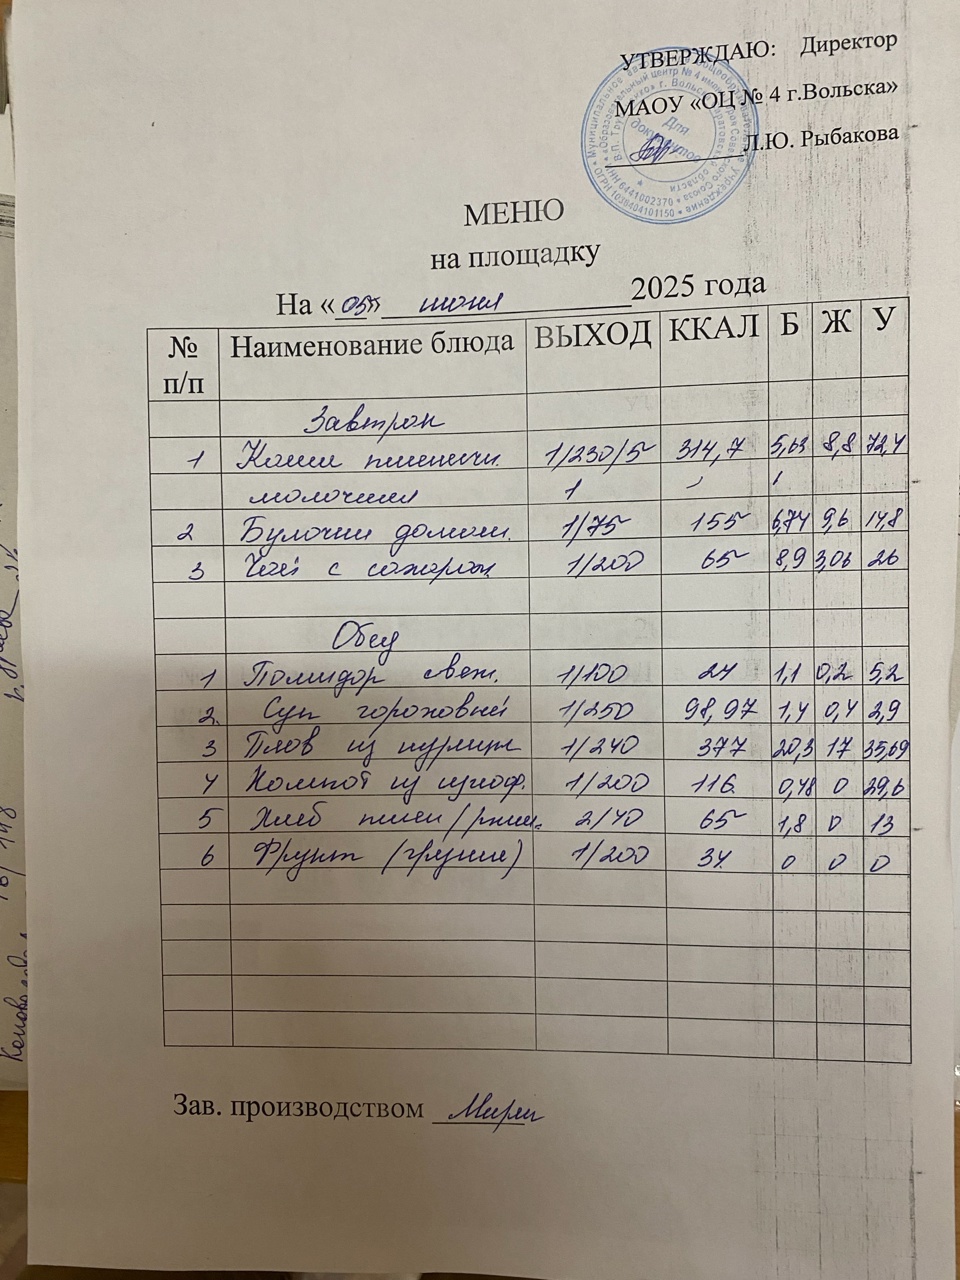 УТВЕРЖДАЮ: Директор
МАОУ «ОЦ № 4 г.Вольска»
Л.Ю. Рыбакова
Для документов
ИНН 6441002370
МЕНЮ
на площадку
На «05» июня 2025 года
№ п/п Наименование блюда ВЫХОД ККАЛ Б Ж У
Завтрак
1 Каша пшеничн. 1/230/5 314,7 5,63 8,8 72,4
молочная 1
2 Булочка домаш. 1/75 155 6,74 9,6 14,8
3 Чай с сахаром 1/200 65 8,9 3,06 26
Обед
1 Помидор свеж. 1/100 24 1,1 0,2 5,2
2. Суп гороховый 1/250 98,97 1,4 0,4 2,9
3 Плов из курицы 1/240 377 20,3 17 35,69
4 Компот из сухоф. 1/200 116 0,48 0 29,6
5 Хлеб пшен/ржан. 2/40 65 1,8 0 13
6 Фрукт (груша) 1/200 34 0 0 0
Зав. производством